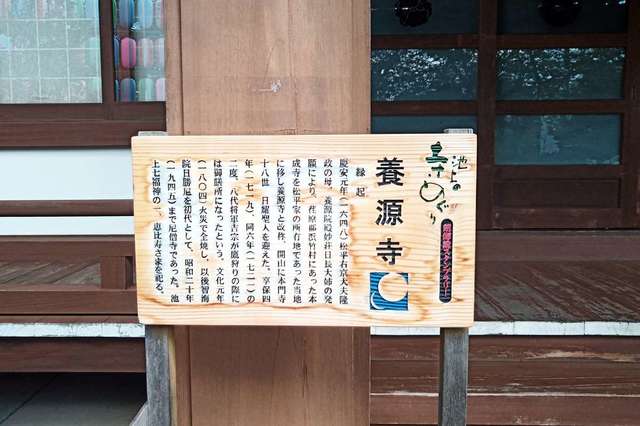 池上の
寺めぐり
養源寺
縁起
慶安元年(一六四八)松平右京大夫隆
政の母、養源院殿妙荘日長大姉の発
願により、荏原郡浜竹村にあった本
成寺を松平家の所有地であった当地
に移し養源寺と改称、開山に本門寺
十八世、日耀聖人を迎えた。享保四
年(一七一九)、同六年(一七二一)の
二度、八代将軍吉宗が鷹狩りの際に
は御膳所になったという。文化元年
(一八〇四)火災で全焼し、以後智海
院日勝尼を初代として、昭和二十年
(一九四五)まで尼僧寺であった。池
上七福神の一、恵比寿さまを祀る。